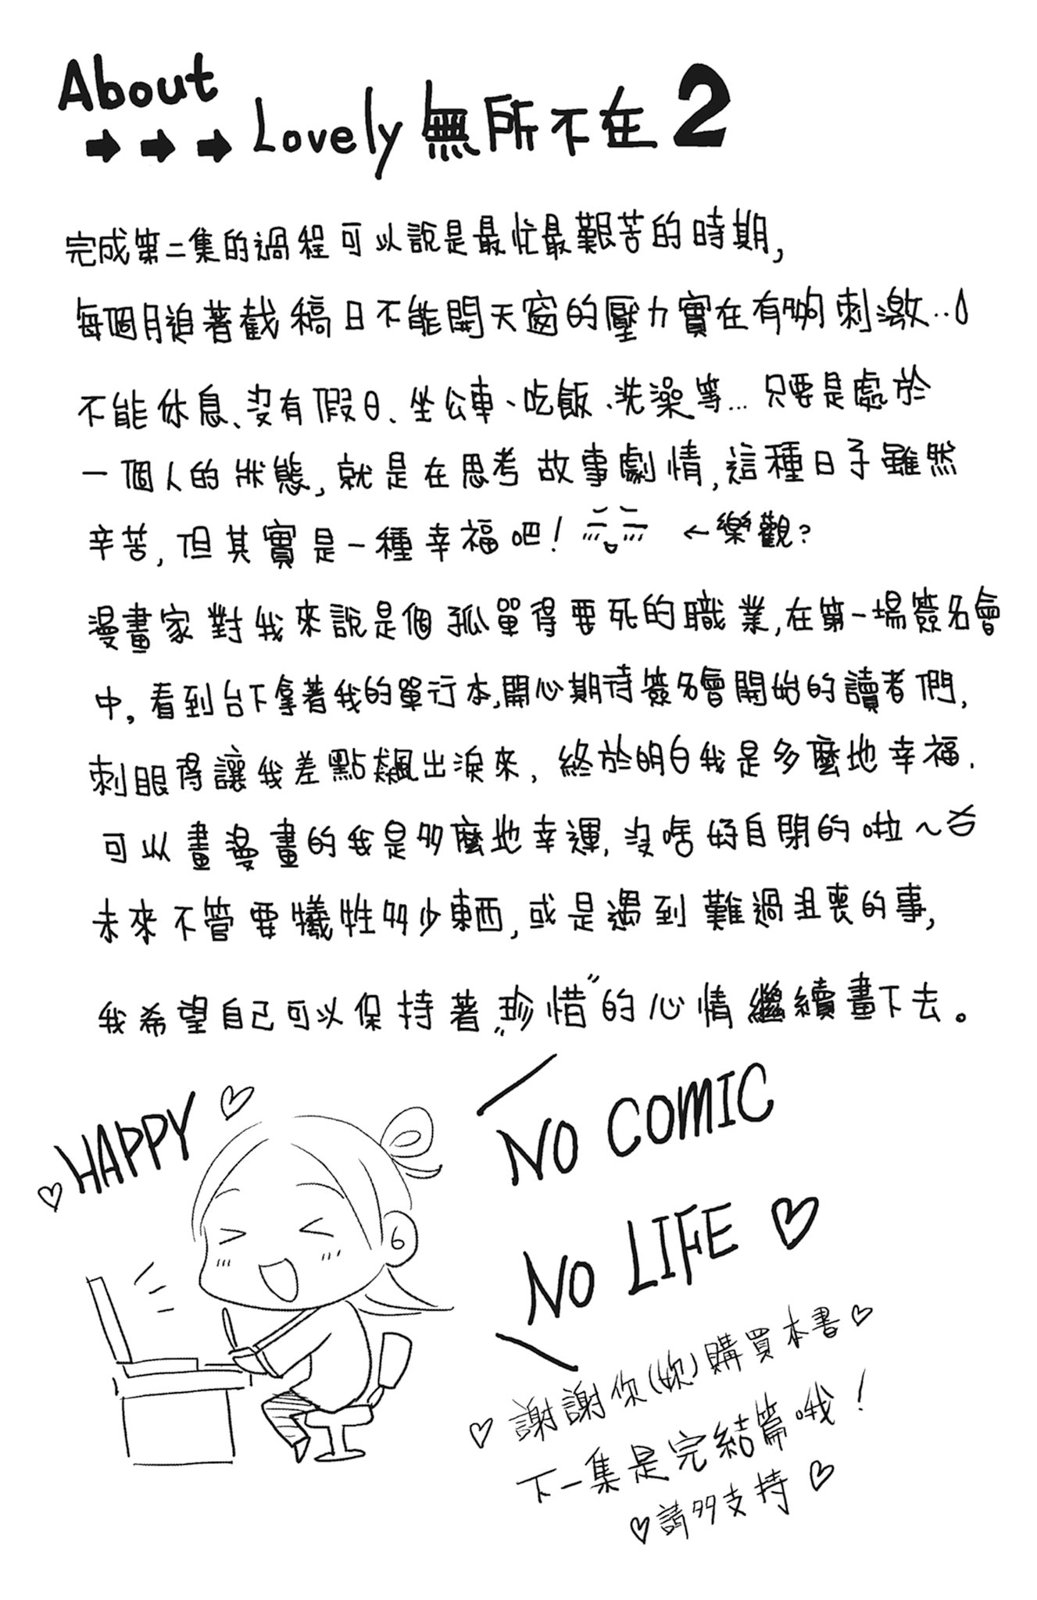 About
→→→ Lovely 無所不在 2
完成第二集的過程可以說是最忙最艱苦的時期,
每個月追著截稿日不能開天窗的壓力實在有夠刺激..
不能休息、沒有假日、坐公車、吃飯、洗澡等...只要是處於
一個人的狀態,就是在思考故事劇情,這種日子雖然
辛苦,但其實是一種幸福吧! ←樂觀?
漫畫家對我來說是個孤單得要死的職業,在第一場簽名會
中,看到台下拿著我的單行本,開心期待簽名會開始的讀者們,
刺眼得讓我差點飆出淚來,終於明白我是多麼地幸福.
可以畫漫畫的我是多麼地幸運,沒啥好自閉的啦~
未來不管要犧牲多少東西,或是遇到難過沮喪的事,
我希望自己可以保持著"珍惜"的心情繼續畫下去。
♡HAPPY♡
NO COMIC
NO LIFE ♡
♡謝謝你(妳)購買本書♡
下一集是完結篇哦!
♡請多支持♡